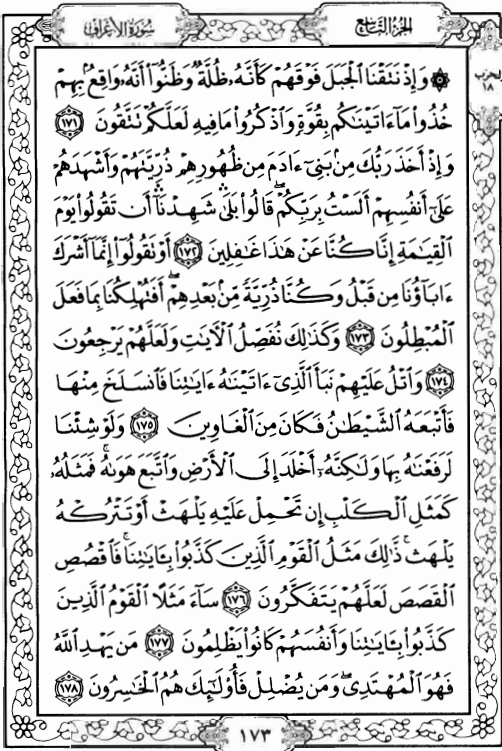 سُورَةُ الأَعْرَافِ
الجُزءُ التَّاسِعُ
الحزب
١٨
۞ وَإِذْ نَتَقْنَا ٱلْجَبَلَ فَوْقَهُمْ كَأَنَّهُۥ ظُلَّةٌ وَظَنُّوٓا۟ أَنَّهُۥ وَاقِعٌۢ بِهِمْ
خُذُوا۟ مَآ ءَاتَيْنَٰكُم بِقُوَّةٍ وَٱذْكُرُوا۟ مَا فِيهِ لَعَلَّكُمْ تَتَّقُونَ ١٧١
وَإِذْ أَخَذَ رَبُّكَ مِنۢ بَنِىٓ ءَادَمَ مِن ظُهُورِهِمْ ذُرِّيَّتَهُمْ وَأَشْهَدَهُمْ
عَلَىٰٓ أَنفُسِهِمْ أَلَسْتُ بِرَبِّكُمْ ۖ قَالُوا۟ بَلَىٰ ۛ شَهِدْنَآ ۛ أَن تَقُولُوا۟ يَوْمَ
ٱلْقِيَٰمَةِ إِنَّا كُنَّا عَنْ هَٰذَا غَٰفِلِينَ ١٧٢ أَوْ تَقُولُوٓا۟ إِنَّمَآ أَشْرَكَ
ءَابَآؤُنَا مِن قَبْلُ وَكُنَّا ذُرِّيَّةً مِّنۢ بَعْدِهِمْ ۖ أَفَتُهْلِكُنَا بِمَا فَعَلَ
ٱلْمُبْطِلُونَ ١٧٣ وَكَذَٰلِكَ نُفَصِّلُ ٱلْءَايَٰتِ وَلَعَلَّهُمْ يَرْجِعُونَ
١٧٤ وَٱتْلُ عَلَيْهِمْ نَبَأَ ٱلَّذِىٓ ءَاتَيْنَٰهُ ءَايَٰتِنَا فَٱنسَلَخَ مِنْهَا
فَأَتْبَعَهُ ٱلشَّيْطَٰنُ فَكَانَ مِنَ ٱلْغَاوِينَ ١٧٥ وَلَوْ شِئْنَا
لَرَفَعْنَٰهُ بِهَا وَلَٰكِنَّهُۥٓ أَخْلَدَ إِلَى ٱلْأَرْضِ وَٱتَّبَعَ هَوَىٰهُ ۚ فَمَثَلُهُۥ
كَمَثَلِ ٱلْكَلْبِ إِن تَحْمِلْ عَلَيْهِ يَلْهَثْ أَوْ تَتْرُكْهُ
يَلْهَث ۚ ذَّٰلِكَ مَثَلُ ٱلْقَوْمِ ٱلَّذِينَ كَذَّبُوا۟ بِـَٔايَٰتِنَا ۚ فَٱقْصُصِ
ٱلْقَصَصَ لَعَلَّهُمْ يَتَفَكَّرُونَ ١٧٦ سَآءَ مَثَلًا ٱلْقَوْمُ ٱلَّذِينَ
كَذَّبُوا۟ بِـَٔايَٰتِنَا وَأَنفُسَهُمْ كَانُوا۟ يَظْلِمُونَ ١٧٧ مَن يَهْدِ ٱللَّهُ
فَهُوَ ٱلْمُهْتَدِى ۖ وَمَن يُضْلِلْ فَأُو۟لَٰٓئِكَ هُمُ ٱلْخَٰسِرُونَ ١٧٨
١٧٣